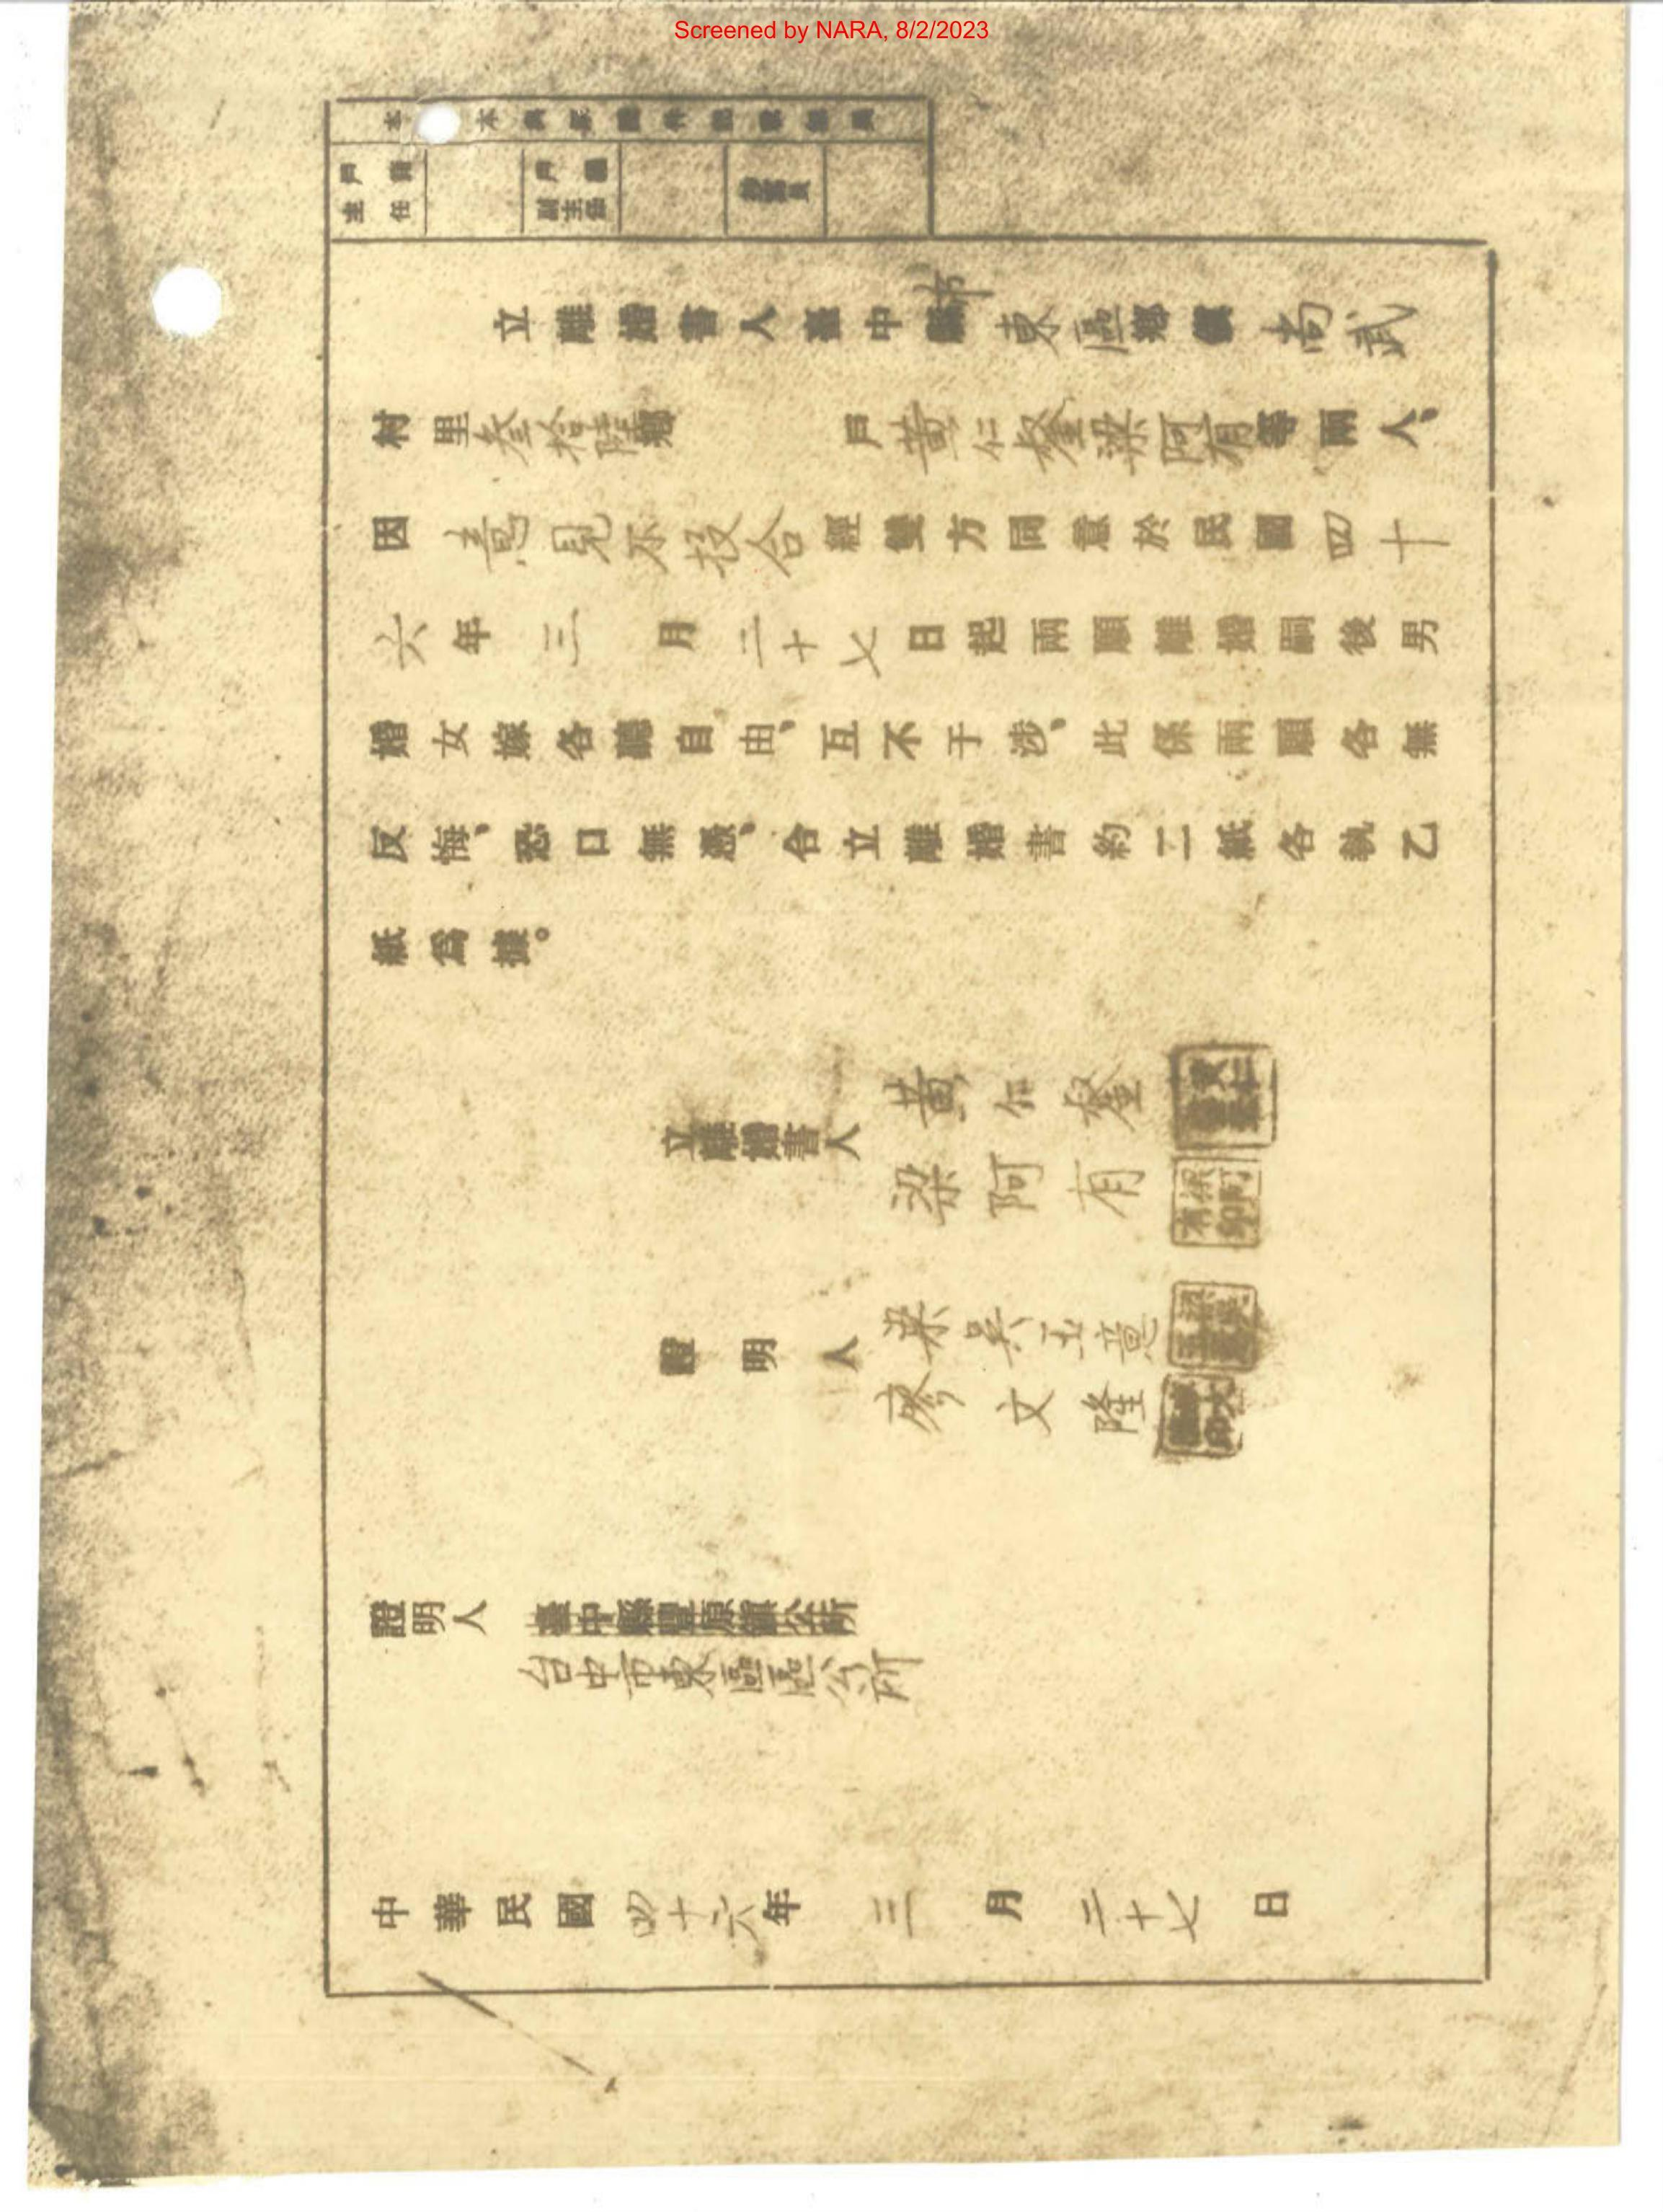 Screened by NARA, 8/2/2023
戶籍主任
立離婚書人臺中縣市東區鄉鎮尚武
村里叁拾陸鄰 戶黃仁 梁阿有等兩人,
因意見不投合經雙方同意於民國四十
六年三月二十七日起兩願離婚嗣後男
婚女嫁各聽自由,互不干涉,此係兩願各無
反悔,恐口無憑,合立離婚書約二紙各執乙
紙為據。
立離婚書人 黃仁
梁阿有 梁阿有印
證明人 梁吳玉
廖文隆
證明人 臺中縣豐原鎮公所
台中市東區區公所
中華民國四十六年三月二十七日